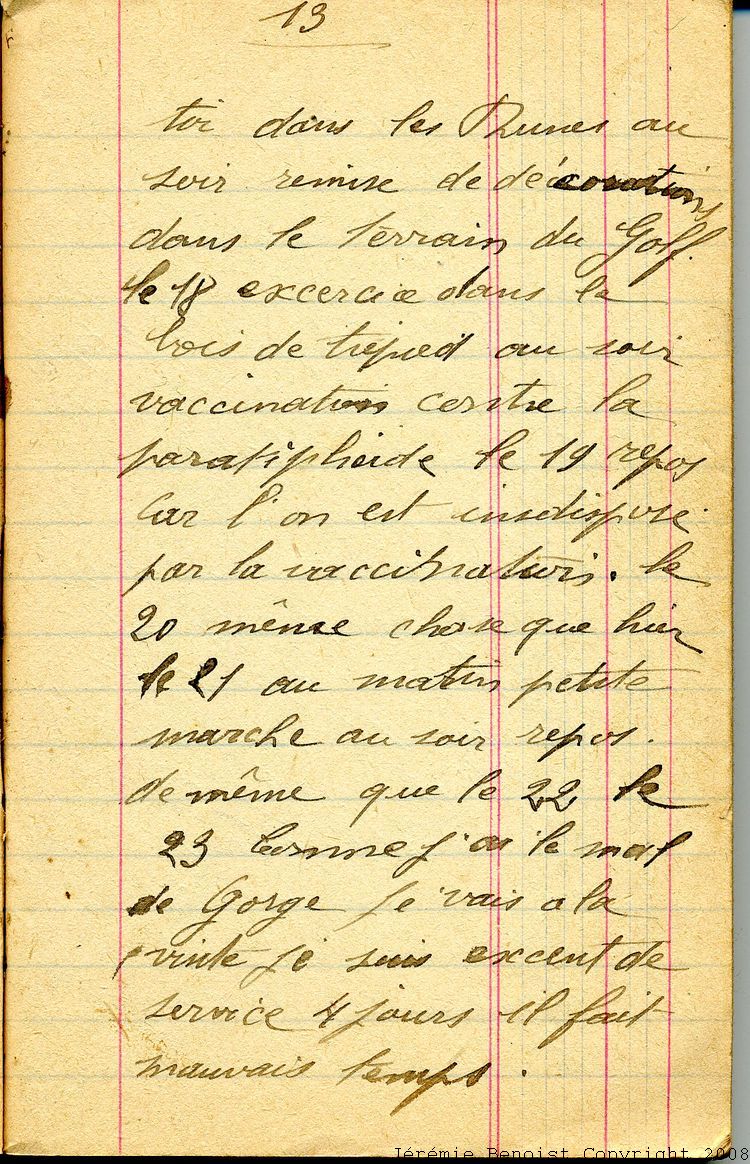 13
toi dans les Dunes au
soir remise de décorations
dans le terrain du Golf.
le 18 excercice dans le
bois de trépied au soir
vaccination contre la
paratiphoide le 19 repos
car l'on est insdisposé
par la vaccination. le
20 même chose que hier
le 21 au matin petite
marche au soir repos.
de même que le 22 le
23 comme j'ai le mal
de Gorge je vais a la
visite je suis excent de
service 4 jours il fait
mauvais temps.
Jérémie Benoist Copyright 2008